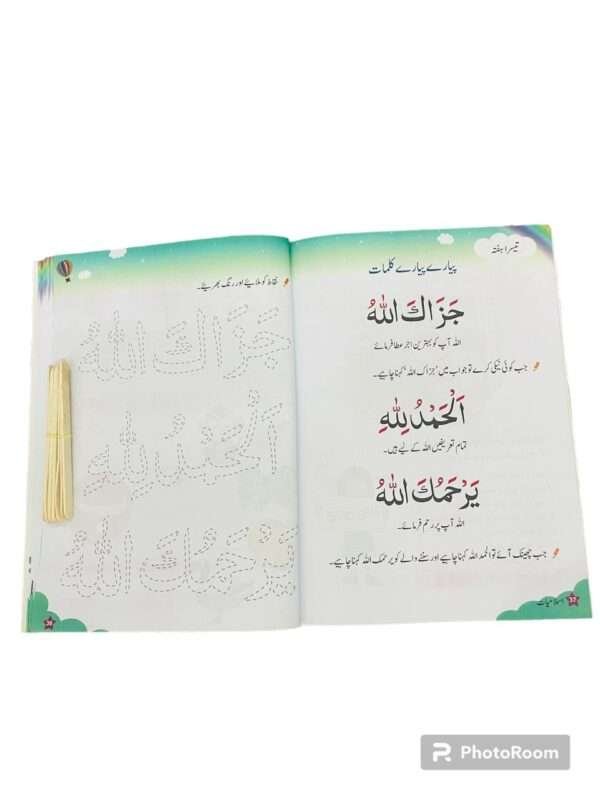 تیسرا ہفتہ
پیارے پیارے کلمات
جَزَاكَ اللهُ
اللہ آپ کو بہترین اجر عطا فرمائے
جب کوئی نیکی کرے تو جواب میں ’جزاک اللہ‘ کہنا چاہیے۔
اَلْحَمْدُ لِلّٰهِ
تمام تعریفیں اللہ کے لیے ہیں۔
يَرْحَمُكَ اللهُ
اللہ آپ پر رحم فرمائے۔
جب چھینک آئے تو الحمد اللہ کہنا چاہیے اور سننے والے کو یرحمک اللہ کہنا چاہیے۔
اسلامیات 37
نقاط کو ملایئے اور رنگ بھریئے۔
جَزَاكَ اللهُ
اَلْحَمْدُ لِلّٰهِ
يَرْحَمُكَ اللهُ
38
PhotoRoom